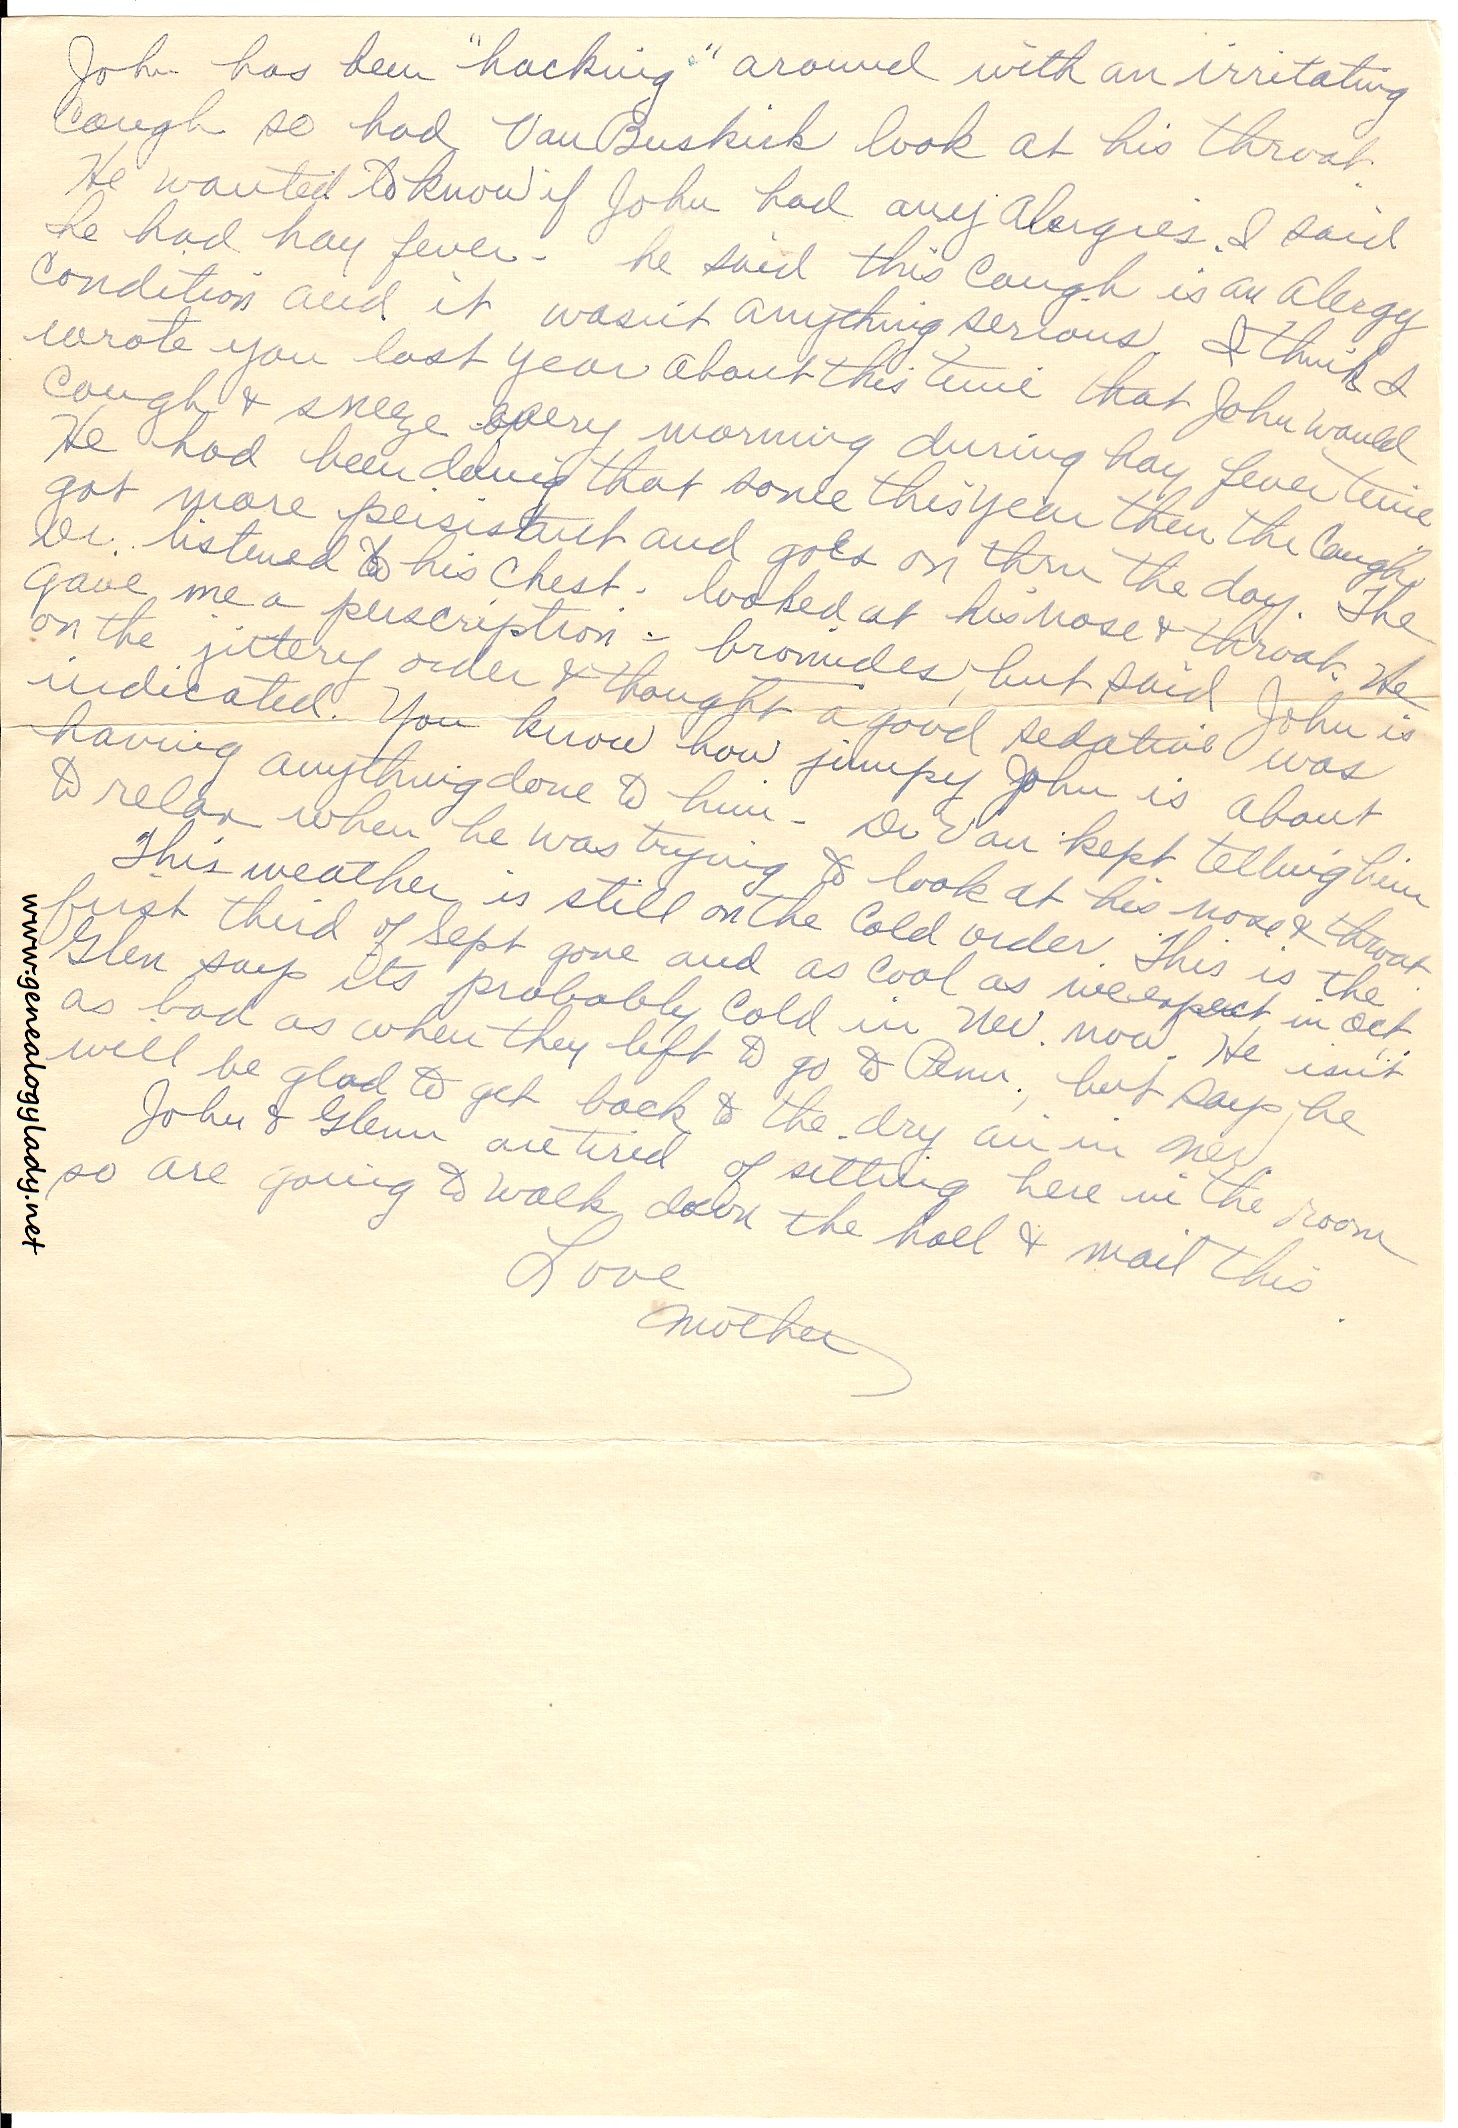 John has been "hacking" around with an irritating
cough so had Van Buskirk look at his throat.
He wanted to know if John had any alergies. I said
he had hay fever - he said this cough is an alergy
condition and it wasn't anything serious. I think I
wrote you last year about this time that John would
cough & sneeze every morning during hay fever time
He had been doing that some this year then the cough
got more persistent and goes on thru the day. The
Dr. listened to his chest - looked at his nose & throat. He
gave me a perscription - bromides, but said John is
on the jittery order & thought a good sedative was
indicated. You know how jumpy John is about
having anything done to him - Dr Van kept telling him
to relax when he was trying to look at his nose & throat.
This weather is still on the cold order. This is the
first third of Sept gone and as cool as we expect in Oct.
Glen says its probably cold in Nev. now. He isn't
as bad as when they left to go to Penn., but says he
will be glad to get back to the dry air in Nev.
John & Glenn are tired of sitting here in the room
so are going to walk down the hall & mail this.
Love
Mother
www.genealogylady.net